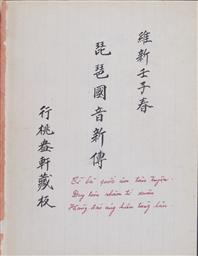 維新壬子春
琵琶國音新傳
行桃盎軒藏板
Tì bà quốc âm tân truyện.
Duy tân nhâm tí xuân